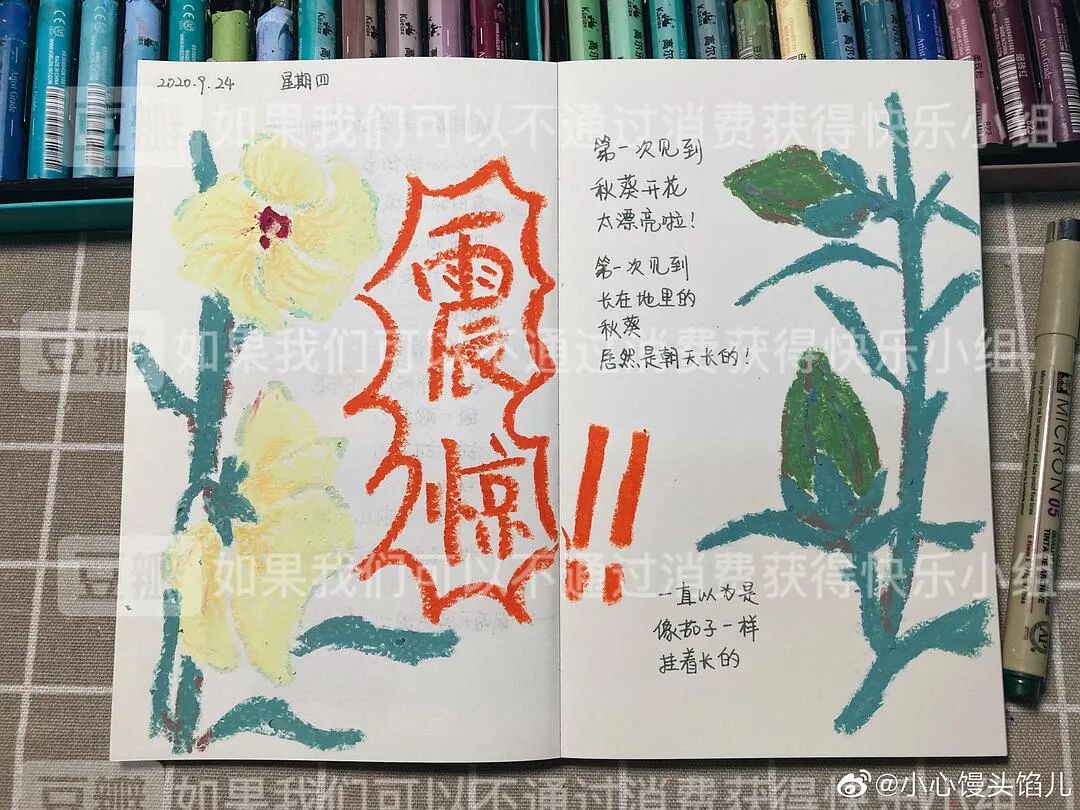 2020.9.24 星期四
震
惊
!!
第一次见到
秋葵开花
太漂亮啦！
第一次见到
长在地里的
秋葵
居然是朝天长的！
一直以为是
像茄子一样
挂着长的
豆瓣 如果我们可以不通过消费获得快乐小组
豆瓣 如果我们可以不通过消费获得快乐小组
豆瓣 如果我们可以不通过消费获得快乐小组
豆瓣 如果我们可以不通过消费获得快乐小组
MICRON 05
@小心馒头馅儿